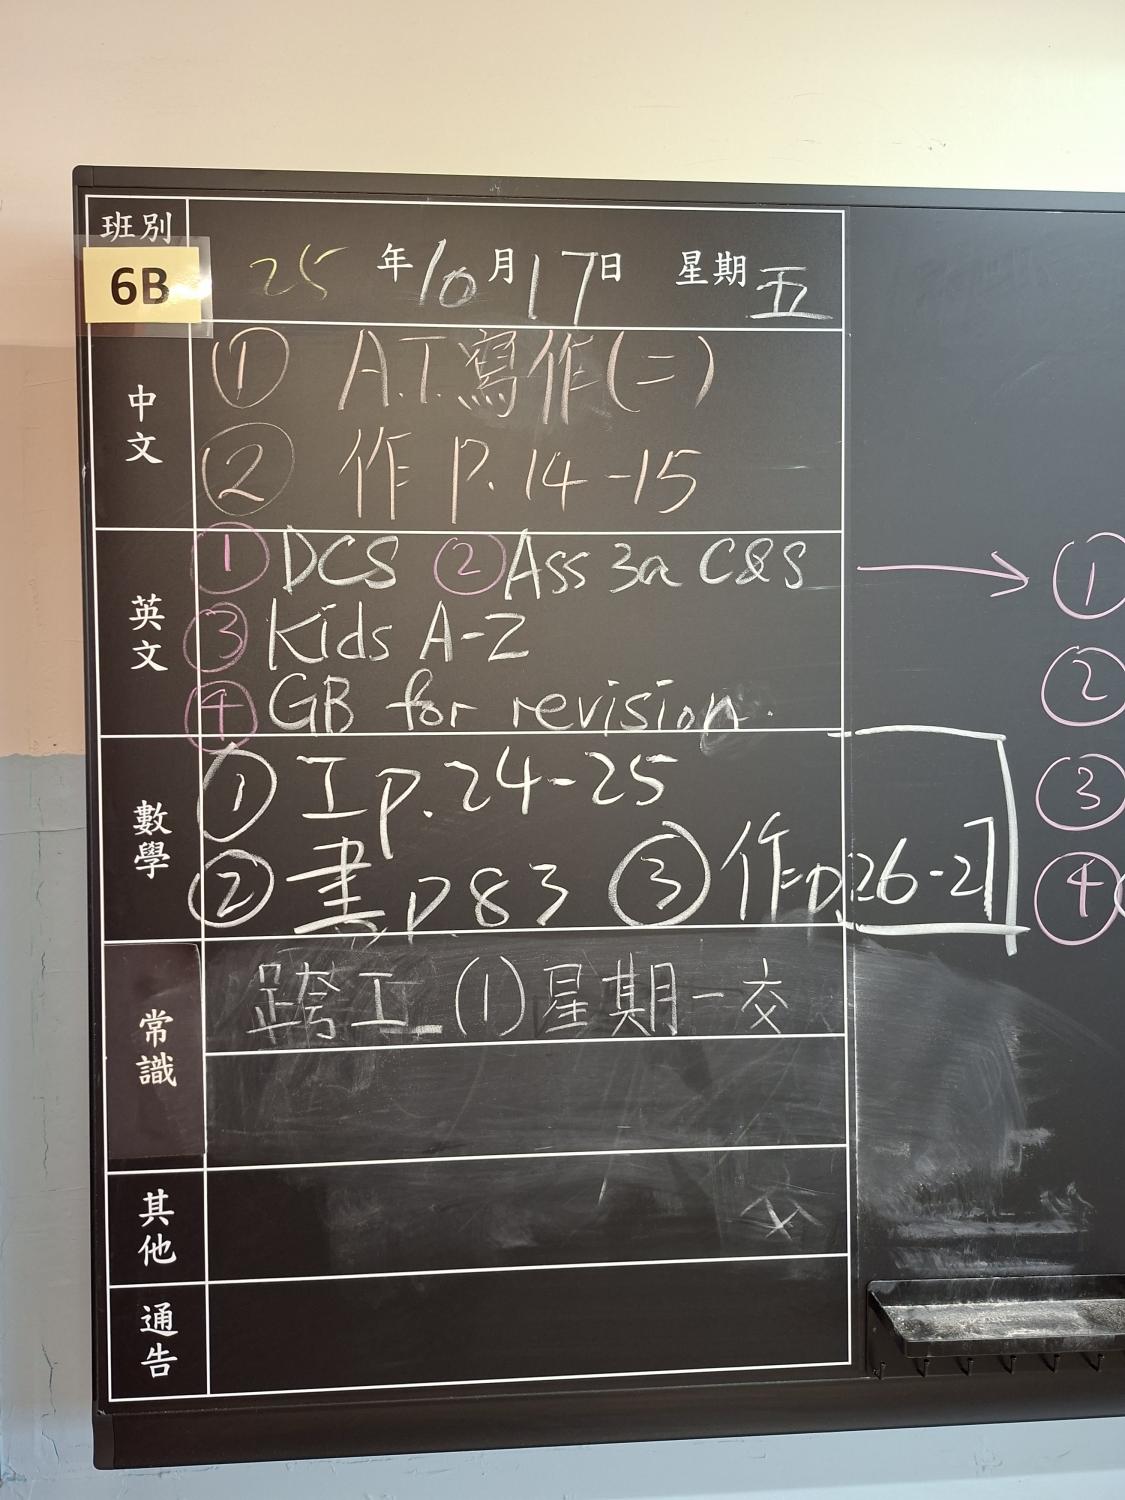 班別
6B
25年10月17日 星期五
中文
① A.T.寫作(二)
② 作 P.14-15
英文
① DCS ② Ass 3a C&S
③ Kids A-Z
④ GB for revision.
數學
① 工 p.24-25
② 書 p.83 ③ 作 p.26-27
常識
跨工 (1) 星期一交
其他
通告
①
②
③
④